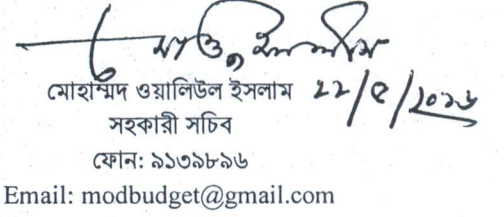 মোহাম্মদ ওয়ালিউল ইসলাম ২২/৫/২০১৬
সহকারী সচিব
ফোন: ৯১৩৯৮৯৬
Email: modbudget@gmail.com